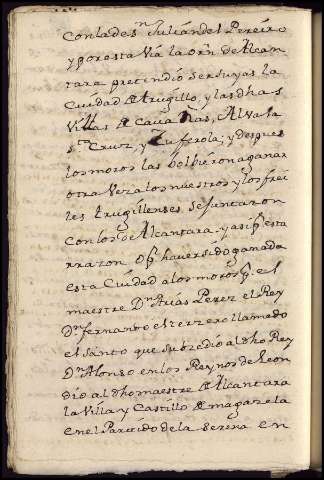 con la de Sn Julian del Pereiro
y por esta via la orn de Alcan
tara pretindio ser suyas la
Ciudad de trugillo, y las dhas
Villas de Cava nas, Alvala
Sta Cruz, y Zuferola; y despues
los moros las bolbieron a ganar
otra vez a los nuestros y los frei
les trugillenses se juntaron
con los de Alcantara, y asi pr esta
rrazon o pr haver sido ganada
esta Ciudad a los moros pr el
maestre Dn Arias Perez el Rey
Dn fernando el terzero llamado
el santo que subzedio al dho Rey
Dn Alonso en los Reynos de Leon
dio al dho maestre de Alcantara
la Villa y Castillo de magazela
en el Partido de la Serena en